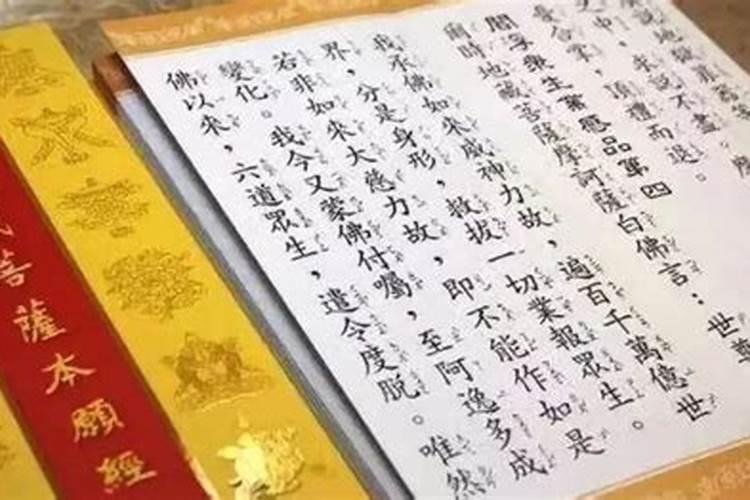 說地獄罪報等
中，求說不盡。
憂合掌，頂禮而退。
閻浮眾生業感品第四
爾時地藏菩薩摩訶薩白佛言：世尊
我承佛如來威神力故，遍百千萬億世
界，分是身形，救拔一切業報眾生。
若非如來大慈力故，即不能作如是
變化。我今又蒙佛付囑，至阿逸多成
佛以來，六道眾生，遣令度脫。唯然
菩薩本願經